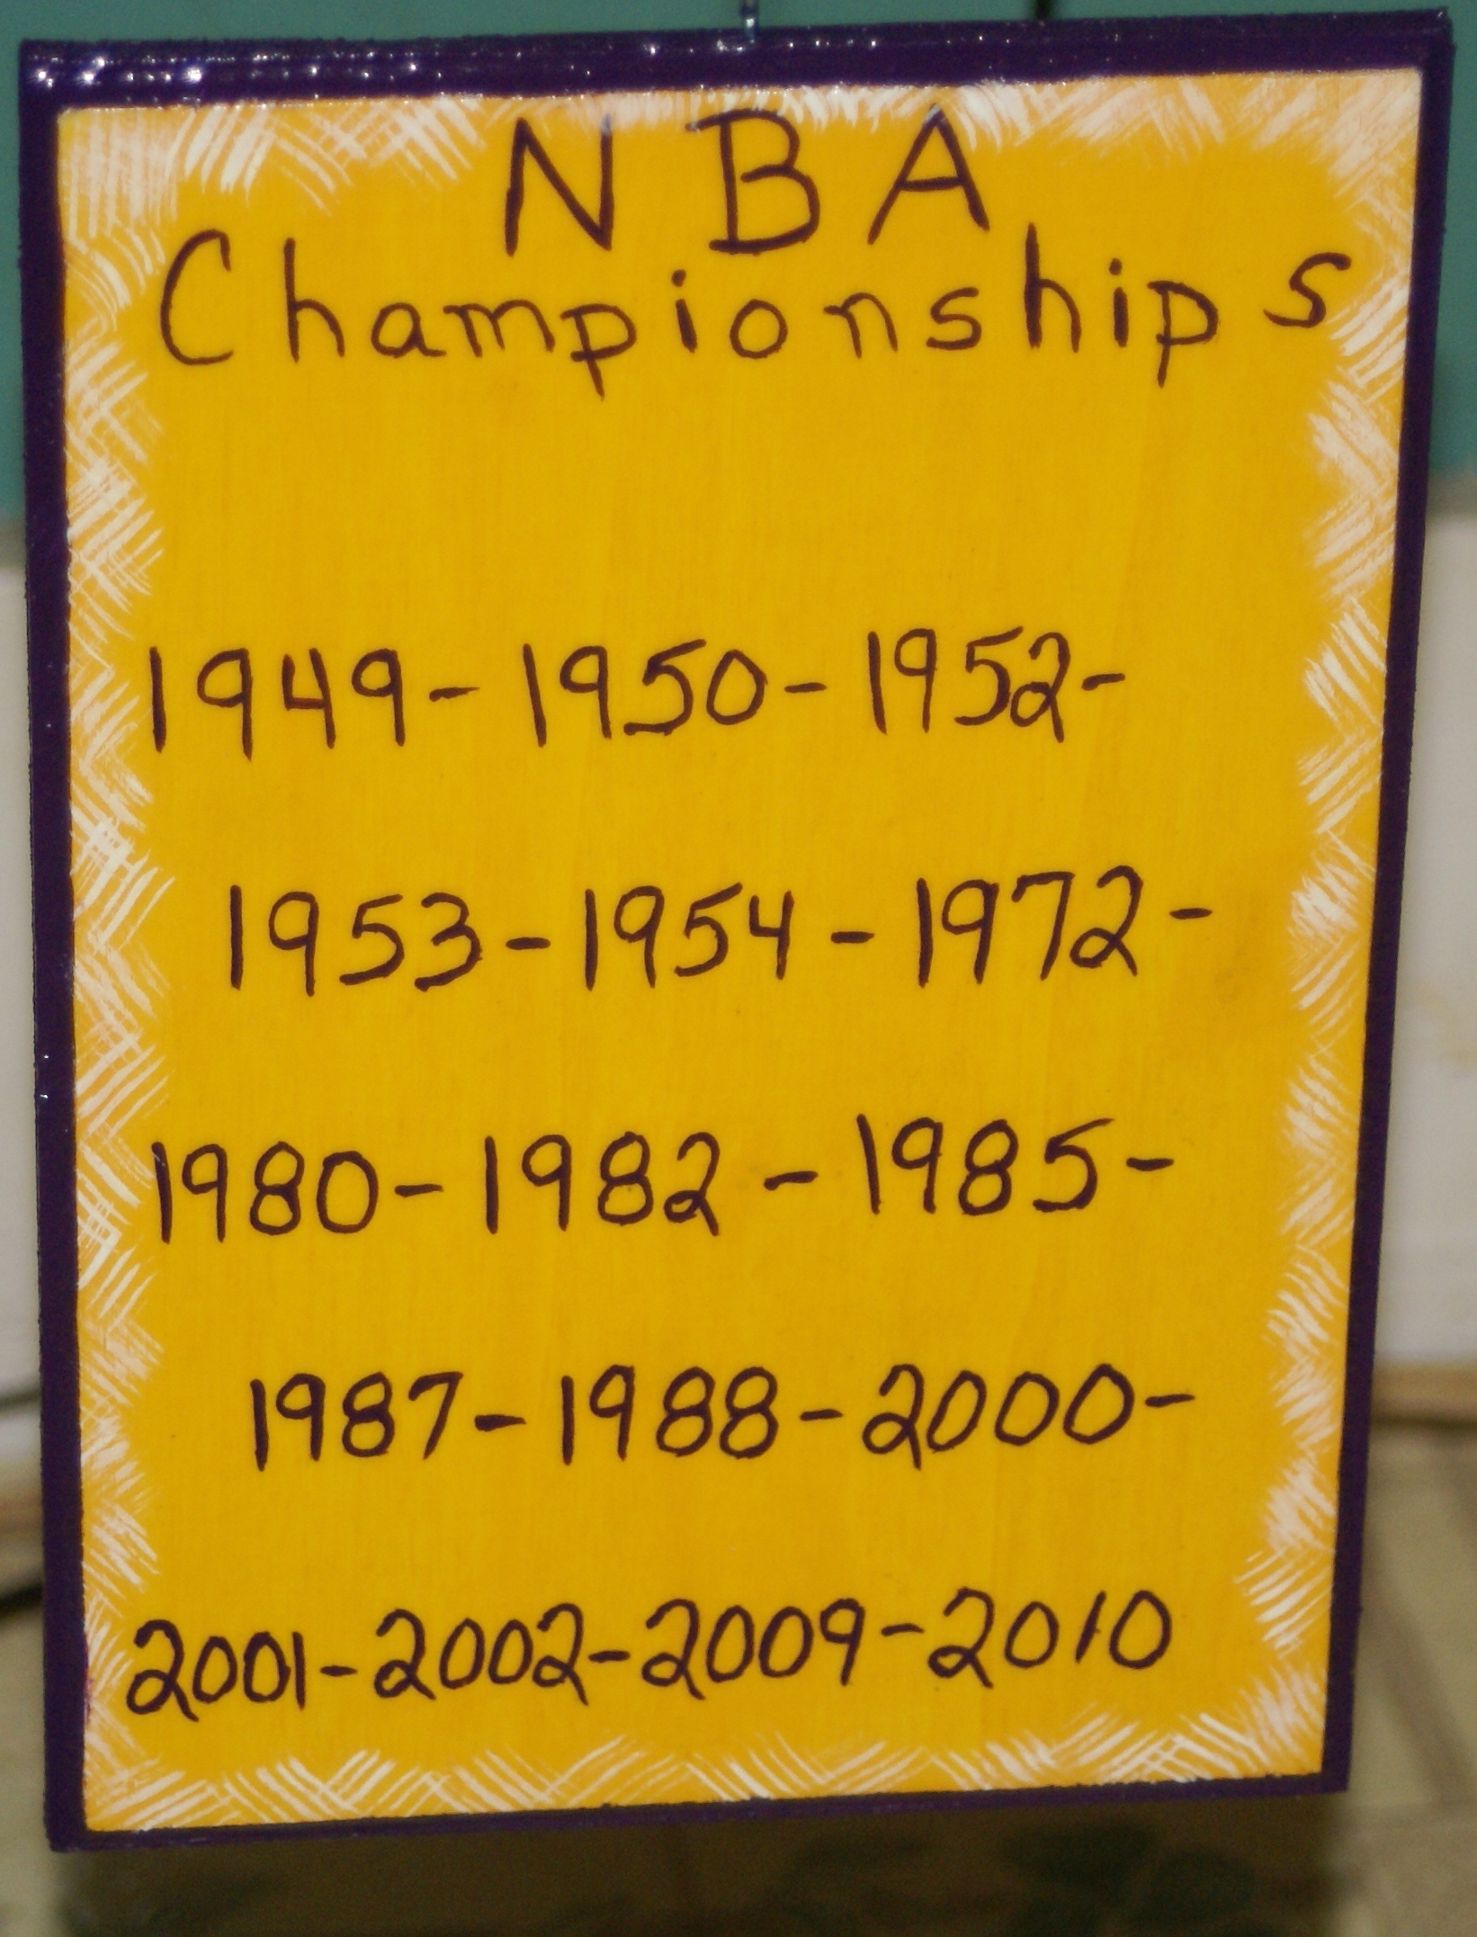 NBA
Championships
1949-1950-1952-
1953-1954-1972-
1980-1982-1985-
1987-1988-2000-
2001-2002-2009-2010